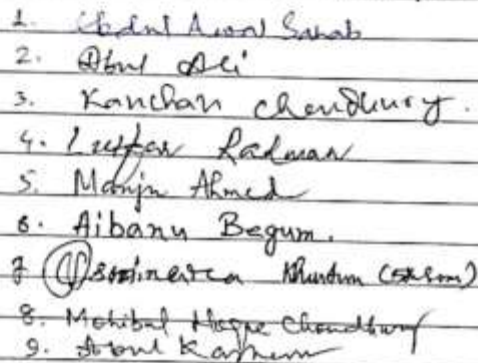 1. Abdul Awal Sahab
2. Abul Ali
3. Kanchan Choudhury.
4. Lutfar Rahman
5. Manju Ahmed
6. Aibanu Begum.
7 Khatun
8. Mohibul Hoque Choudhury
9. Abul Kashem